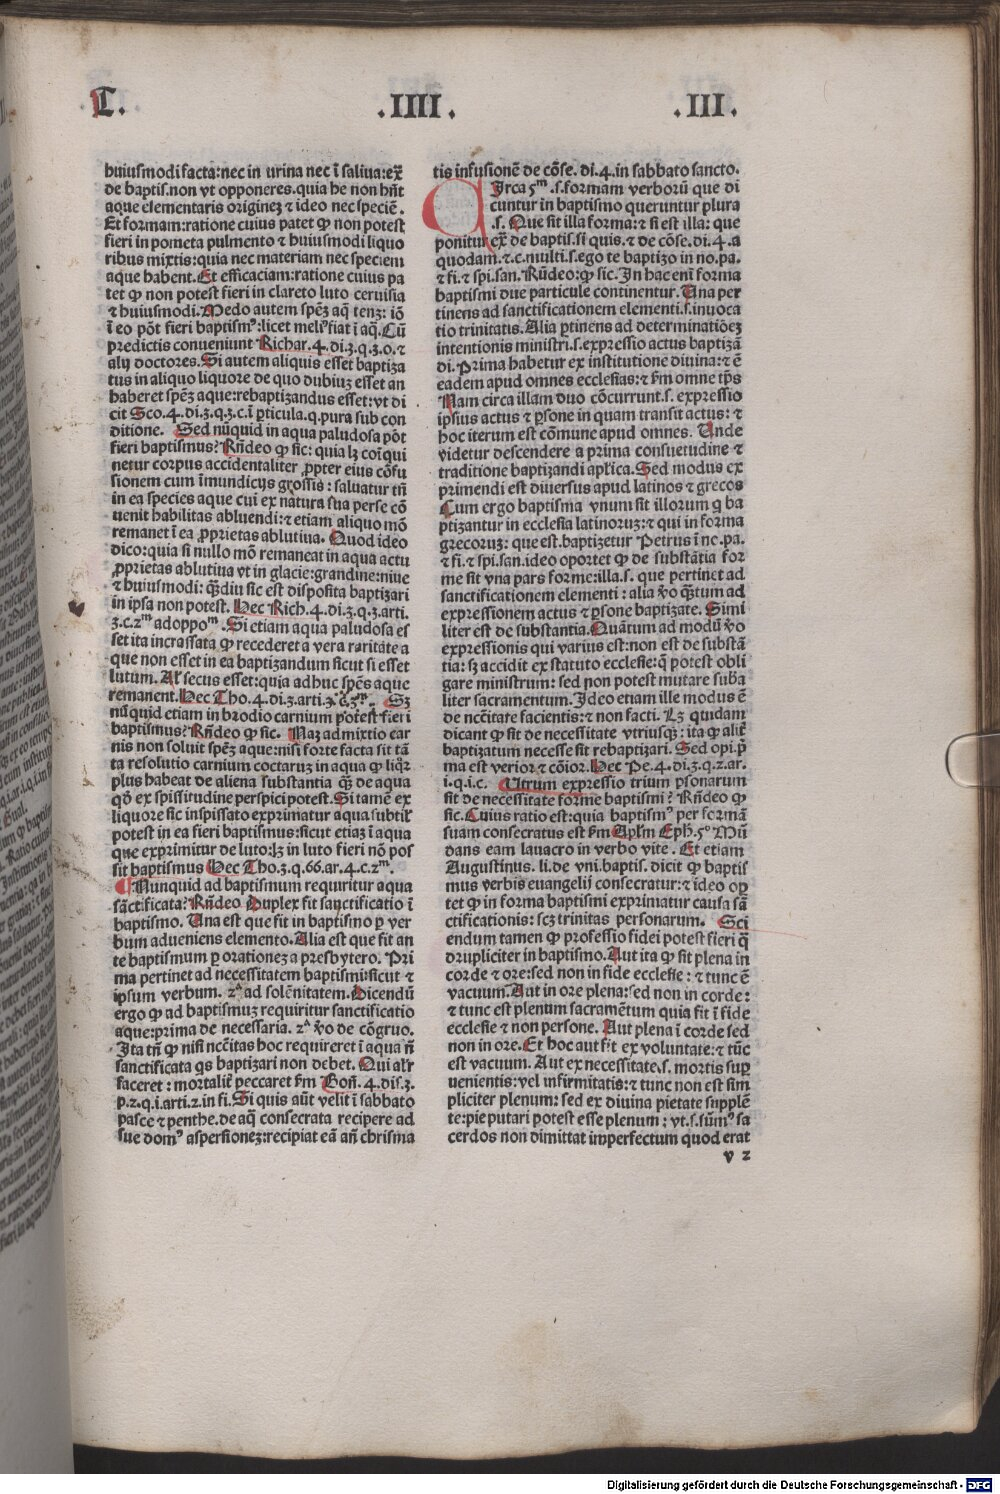 T. .IIII. .III.
huiusmodi facta: nec in vrina nec ī saliua: ex̄
de baptis. non vt opponeres. quia he non hn̄t
aque elementaris originez ⁊ ideo nec speciē.
Et formam: ratione cuius patet ꝙ non potest
fieri in pometa pulmento ⁊ huiusmodi liquo
ribus mixtis: quia nec materiam nec speciem
aque habent. Et efficaciam: ratione cuius pa
tet ꝙ non potest fieri in clareto luto ceruisia
⁊ huiusmodi. Medo autem spēz aq̄ tenz: iō
ī eo pōt fieri baptismꝰ: licet meliꝰ fiat ī aq̄. Cū
predictis conueniunt Richar. 4. di. 3. q. 3. o. ⁊
alij doctores. Si autem aliquis esset baptiza
tus in aliquo liquore de quo dubiuz esset an
haberet spēz aque: rebaptizandus esset: vt di
cit Sco. 4. di. 3. q. 3. c. ī ꝑticula. q. pura sub con
ditione. Sed nūquid in aqua paludosa pōt
fieri baptismus? Rn̄deo ꝙ sic: quia lꝫ coīqui
netur corpus accidentaliter ꝓpter eius cōfu
sionem cum īmundicijs grossis: saluatur tn̄
in ea species aque cui ex natura sua perse cō
uenit habilitas abluendi: ⁊ etiam aliquo mō
remanet ī ea ꝓprietas ablutiua. Quod ideo
dico: quia si nullo mō remaneat in aqua actu
ꝓprietas ablutiua vt in glacie: grandine: niue
⁊ huiusmodi: qꝫdiu sic est disposita baptizari
in ipsa non potest. Hec Rich. 4. di. 3. q. 3. arti.
3. c. 2ᵐ ad oppoᵐ. Si etiam aqua paludosa es
set ita incrassata ꝙ recederet a vera raritate a
que non esset in ea baptizandum sicut si esset
lutum. Al̄r secus esset: quia adhuc spēs aque
remanent. Hec Tho. 4. di. 3. arti. 3. c. 3ᵐ. Sꝫ
nūquid etiam in brodio carnium potest fieri
baptismus? Rn̄deo ꝙ sic. Naꝫ admixtio car
nis non soluit spēz aque: nisi forte facta sit tā
ta resolutio carnium coctarum in aqua ꝙ liq̄r
plus habeat de aliena substantia qꝫ de aqua
qd̄ ex spissitudine perspici potest. Si tamē ex
liquore sic inspissato exprimatur aqua subtil̄
potest in ea fieri baptismus: sicut etiaꝫ ī aqua
que exprimitur de luto: lꝫ in luto fieri nō pos
sit baptismus Hec Tho. 3. q. 66. ar. 4. c. 2ᵐ.
¶ Nunquid ad baptismum requiritur aqua
sāctificata? Rn̄deo Duplex fit sanctificatio ī
baptismo. Una est que fit in baptismo ꝑ ver
bum adueniens elemento. Alia est que fit an
te baptismum ꝑ orationez a presbytero. Pri
ma pertinet ad necessitatem baptismi: sicut ⁊
ipsum verbum. 2ᵃ ad solēnitatem. Dicendū
ergo ꝙ ad baptismuz requiritur sanctificatio
aque: prima de necessaria. 2ᵃ v̄o de cōgruo.
Ita tn̄ ꝙ nisi nc̄citas hoc requireret ī aqua n̄
sanctificata qs baptizari non debet. Qui al̄r
faceret: mortalit̄ peccaret sm Bon̄. 4. dis. 3.
p. 2. q. i. arti. 2. in fi. Si quis aūt velit ī sabbato
pasce ⁊ penthe. de aq̄ consecrata recipere ad
sue domꝰ aspersionez: recipiat eā an̄ chrisma
tis infusionē de cōse. di. 4. in sabbato sancto.
Circa 5ᵐ .s. formam verborū que di
cuntur in baptismo queruntur plura
.s. Que sit illa forma: ⁊ si est illa: que
ponitur ex̄ de baptis. si quis. ⁊ de cōse. di. 4. a
quodam. ⁊. c. multi. s. ego te baptizo in no. pa.
⁊ fi. ⁊ spi. san. Rn̄deo: ꝙ sic. In hac enī forma
baptismi due particule continentur. Una per
tinens ad sanctificationem elementi. s. inuoca
tio trinitatis. Alia ꝑtinens ad determinatiōeꝫ
intentionis ministri. s. expressio actus baptizā
di. Prima habetur ex institutione diuina: ⁊ ē
eadem apud omnes ecclesias: ⁊ sm omne tp̄s
Nam circa illam duo cōcurrunt. s. expressio
ipsius actus ⁊ ꝑsone in quam transit actus: ⁊
hoc iterum est cōmune apud omnes. Unde
videtur descendere a prima consuetudine ⁊
traditione baptizandi apl̄ica. Sed modus ex
primendi est diuersus apud latinos ⁊ grecos
Cum ergo baptisma vnum sit illorum q̄ ba
ptizantur in ecclesia latinoruꝫ: ⁊ qui in forma
grecoruꝫ: que est. baptizetur Petrus ī no. pa.
⁊ fi. ⁊ spi. san. ideo oportet ꝙ de substātia for
me sit vna pars forme: illa. s. que pertinet ad
sanctificationem elementi: alia v̄o qꝫtum ad
expressionem actus ⁊ ꝑsone baptizate. Simi
liter est de substantia. Quātum ad modū v̄o
expressionis qui varius est: non est de substā
tia: sꝫ accidit ex statuto ecclesie: q̄ potest obli
gare ministrum: sed non potest mutare suba
liter sacramentum. Ideo etiam ille modus ē
de nc̄citate facientis: ⁊ non facti. Lꝫ quidam
dicant ꝙ sit de necessitate vtriusqꝫ: ita ꝙ alit̄
baptizatum necesse sit rebaptizari. Sed opi. p̄
ma est verior ⁊ cōior. Hec Pe. 4. di. 3. q. 2. ar.
i. q. i. c. Utrum expressio trium ꝑsonarum
sit de necessitate forme baptismi? Rn̄deo ꝙ
sic. Cuius ratio est: quia baptismꝰ per formā
suam consecratus est sm Apl̄m Eph. 5º Mū
dans eam lauacro in verbo vite. Et etiam
Augustinus. li. de vni. baptis. dicit ꝙ baptis
mus verbis euangelij consecratur: ⁊ ideo opꝫ
tet ꝙ in forma baptismi exprimatur causa sā
ctificationis: scꝫ trinitas personarum. Sci
endum tamen ꝙ professio fidei potest fieri q̄
drupliciter in baptismo. Aut ita ꝙ sit plena in
corde ⁊ ore: sed non in fide ecclesie: ⁊ tunc ē
vacuum. Aut in ore plena: sed non in corde:
⁊ tunc est plenum sacramētum quia fit ī fide
ecclesie ⁊ non persone. Aut plena ī corde sed
non in ore. Et hoc aut fit ex voluntate: ⁊ tūc
est vacuum. Aut ex necessitate. s. mortis supꝫ
uenientis: vel infirmitatis: ⁊ tunc non est sim
pliciter plenum: sed ex diuina pietate supplē
te: pie putari potest esse plenum: vt. s. sūmꝰ sa
cerdos non dimittat imperfectum quod erat
v 2
Digitalisierung gefördert durch die Deutsche Forschungsgemeinschaft - DFG